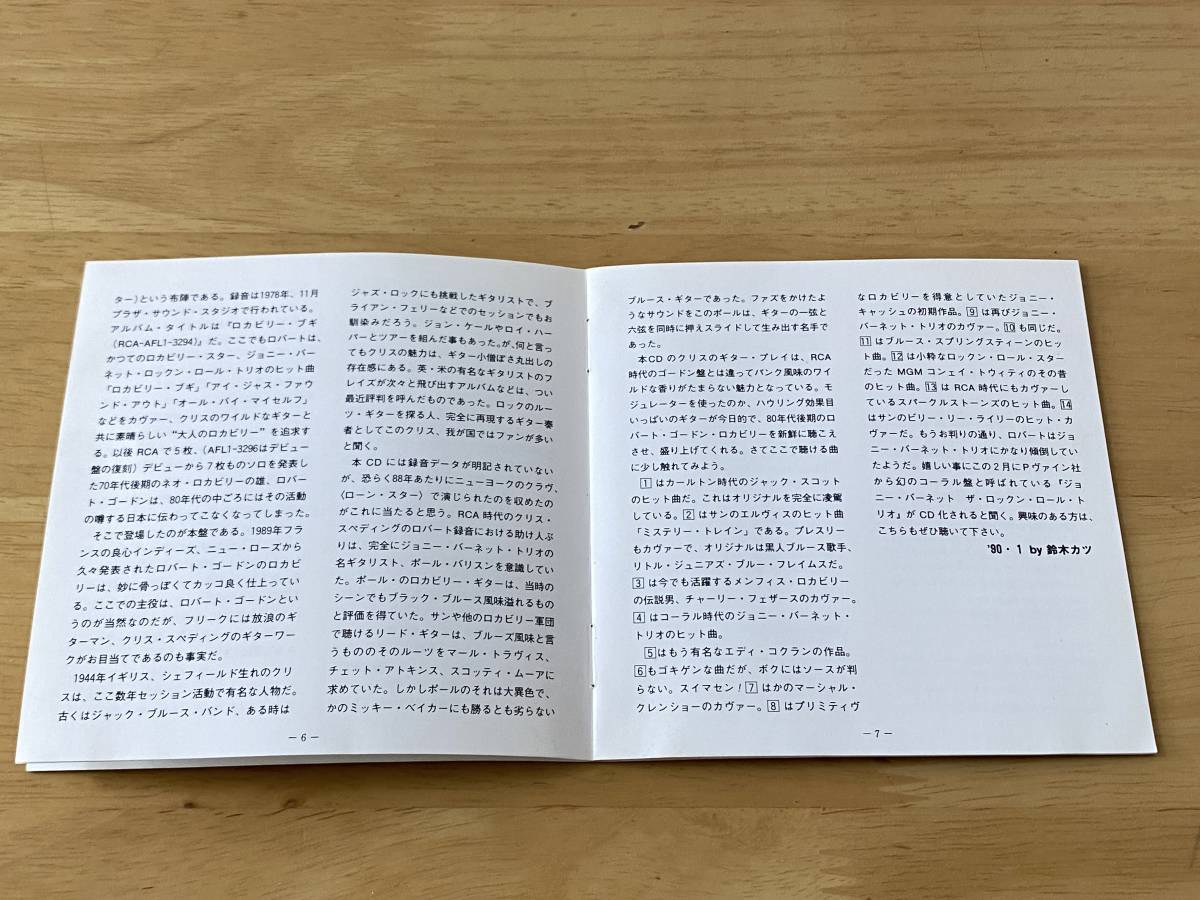 ター)という布陣である。録音は1978年、11月
プラザ・サウンド・スタジオで行われている。
アルバム・タイトルは『ロカビリー・ブギ
(RCA-AFL1-3294)』だ。ここでもロバートは、
かつてのロカビリー・スター、ジョニー・バー
ネット・ロックン・ロール・トリオのヒット曲
「ロカビリー・ブギ」「アイ・ジャス・ファウ
ンド・アウト」「オール・バイ・マイセルフ」
などをカヴァー、クリスのワイルドなギターと
共に素晴らしい“大人のロカビリー”を追求す
る。以後 RCA で5枚、(AFL1-3296はデビュー
盤の復刻) デビューから7枚ものソロを発表し
た70年代後期のネオ・ロカビリーの雄、ロバー
ト・ゴードンは、80年代の中ごろにはその活動
の噂する日本に伝わってこなくなってしまった。
そこで登場したのが本盤である。1989年フラ
ンスの良心インディーズ、ニュー・ローズから
久々発表されたロバート・ゴードンのロカビ
リーは、妙に骨っぽくてカッコ良く仕上ってい
る。ここでの主役は、ロバート・ゴードンとい
うのが当然なのだが、フリークには放浪のギ
ターマン、クリス・スペディングのギターワー
クがお目当てであるのも事実だ。
1944年イギリス、シェフィールド生れのクリ
スは、ここ数年セッション活動で有名な人物だ。
古くはジャック・ブルース・バンド、ある時は
ジャズ・ロックにも挑戦したギタリストで、ブ
ライアン・フェリーなどでのセッションでもお
馴染みだろう。ジョン・ケールやロイ・ハー
パーとツアーを組んだ事もあった。が、何と言っ
てもクリスの魅力は、ギター小僧ぽさ丸出しの
存在感にある。英・米の有名なギタリストのフ
レイズが次々と飛び出すアルバムなどは、つい
最近評判を呼んだものであった。ロックのルー
ツ・ギターを探る人、完全に再現するギター奏
者としてこのクリス、我が国ではファンが多い
と聞く。
本 CD には録音データが明記されていない
が、恐らく88年あたりにニューヨークのクラヴ、
〈ローン・スター〉で演じられたのを収めたの
がこれに当たると思う。RCA 時代のクリス・
スペディングのロバート録音における助け人ぶ
りは、完全にジョニー・バーネット・トリオの
名ギタリスト、ポール・バリスンを意識してい
た。ポールのロカビリー・ギターは、当時の
シーンでもブラック・ブルース風味溢れるもの
と評価を得ていた。サンや他のロカビリー軍団
で聴けるリード・ギターは、ブルーズ風味と言
うもののそのルーツをマール・トラヴィス、
チェット・アトキンス、スコッティ・ムーアに
求めていた。しかしポールのそれは大異色で、
かのミッキー・ベイカーにも勝るとも劣らない
— 6 —
ブルース・ギターであった。ファズをかけたよ
うなサウンドをこのポールは、ギターの一弦と
六弦を同時に押えスライドして生み出す名手で
あった。
本CDのクリスのギター・プレイは、RCA
時代のゴードン盤とは違ってパンク風味のワイ
ルドな香りがたまらない魅力となっている。モ
ジュレーターを使ったのか、ハウリング効果目
いっぱいのギターが今日的で、80年代後期のロ
バート・ゴードン・ロカビリーを新鮮に聴こえ
させ、盛り上げてくれる。さてここで聴ける曲
に少し触れてみよう。
1はカールトン時代のジャック・スコット
のヒット曲だ。これはオリジナルを完全に凌駕
している。2はサンのエルヴィスのヒット曲
「ミステリー・トレイン」である。プレスリー
もカヴァーで、オリジナルは黒人ブルース歌手、
リトル・ジュニアズ・ブルー・フレイムスだ。
3は今でも活躍するメンフィス・ロカビリー
の伝説男、チャーリー・フェザースのカヴァー。
4はコーラル時代のジョニー・バーネット・
トリオのヒット曲。
5はもう有名なエディ・コクランの作品。
6もゴキゲンな曲だが、ボクにはソースが判
らない。スイマセン!7はかのマーシャル・
クレンショーのカヴァー。8はプリミティヴ
なロカビリーを得意としていたジョニー・
キャッシュの初期作品。9は再びジョニー・
バーネット・トリオのカヴァー。10も同じだ。
11はブルース・スプリングスティーンのヒッ
ト曲。12は小粋なロックン・ロール・スター
だった MGM コンェイ・トウィティのその昔
のヒット曲。13は RCA 時代にもカヴァーし
ているスパークルストーンズのヒット曲。14
はサンのビリー・リー・ライリーのヒット・カ
ヴァーだ。もうお判りの通り、ロバートはジョ
ニー・バーネット・トリオにかなり傾倒してい
たようだ。嬉しい事にこの2月にPヴァイン社
から幻のコーラル盤と呼ばれている『ジョ
ニー・バーネット ザ・ロックン・ロール・ト
リオ』が CD 化されると聞く。興味のある方は、
こちらもぜひ聴いて下さい。
'90・1 by 鈴木カツ
— 7 —